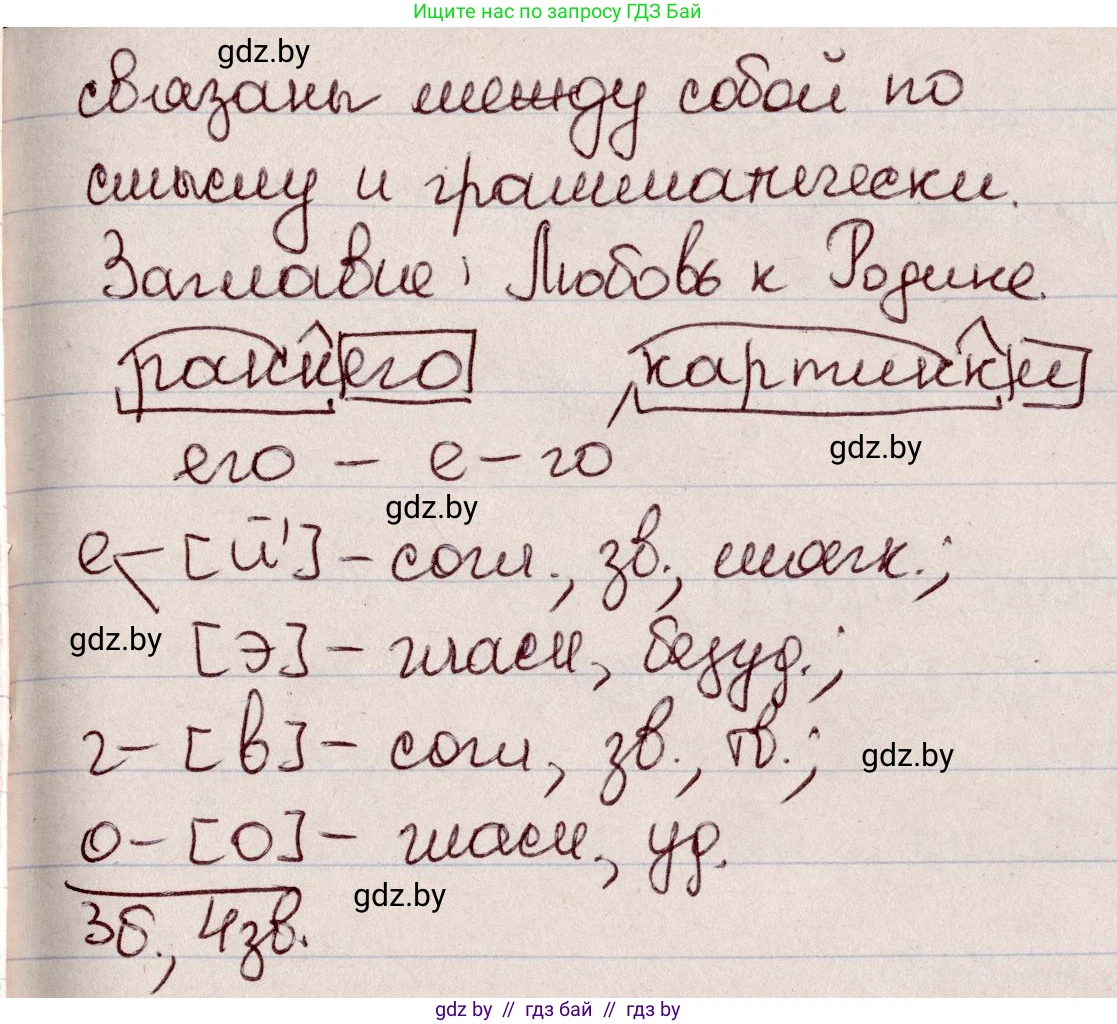 Ищите нас по запросу ГДЗ Бай
gdz.by
связаны между собой по
смыслу и грамматически.
Заглавие: Любовь к Родине.
раннего картинки
его – е – го
gdz.by
gdz.by
е – [й'] – согл., зв., мягк.;
gdz.by
[э] – гласн, безуд.;
г – [в] – согл, зв., тв.;
gdz.by
о – [о] – гласн., уд.
gdz.by
3б., 4зв.
gdz.by // гдз бай // gdz.by